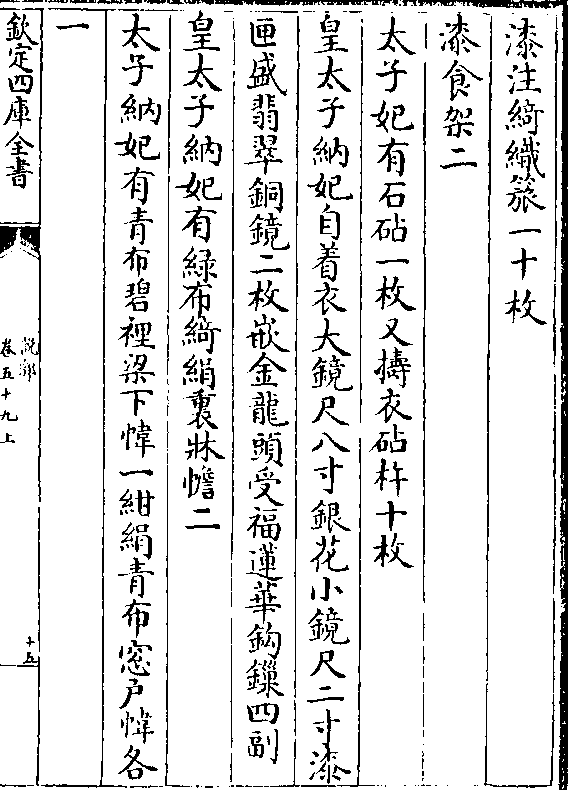 漆注綺織簇一十枚
漆食架二
太子妃有石砧一枚又擣衣砧杵十枚
皇太子納妃自着衣大鏡尺八寸銀花小鏡尺二寸漆
匣盛翡翠銅鏡二枚嵌金龍頭受福蓮華鈎鏁四副
皇太子納妃有緑布綺絹裏牀幨二
太子納妃有青布碧裡梁下幃一紺絹青布窓戸幃各
一
欽定四庫全書
說郛
卷五十九上
十五